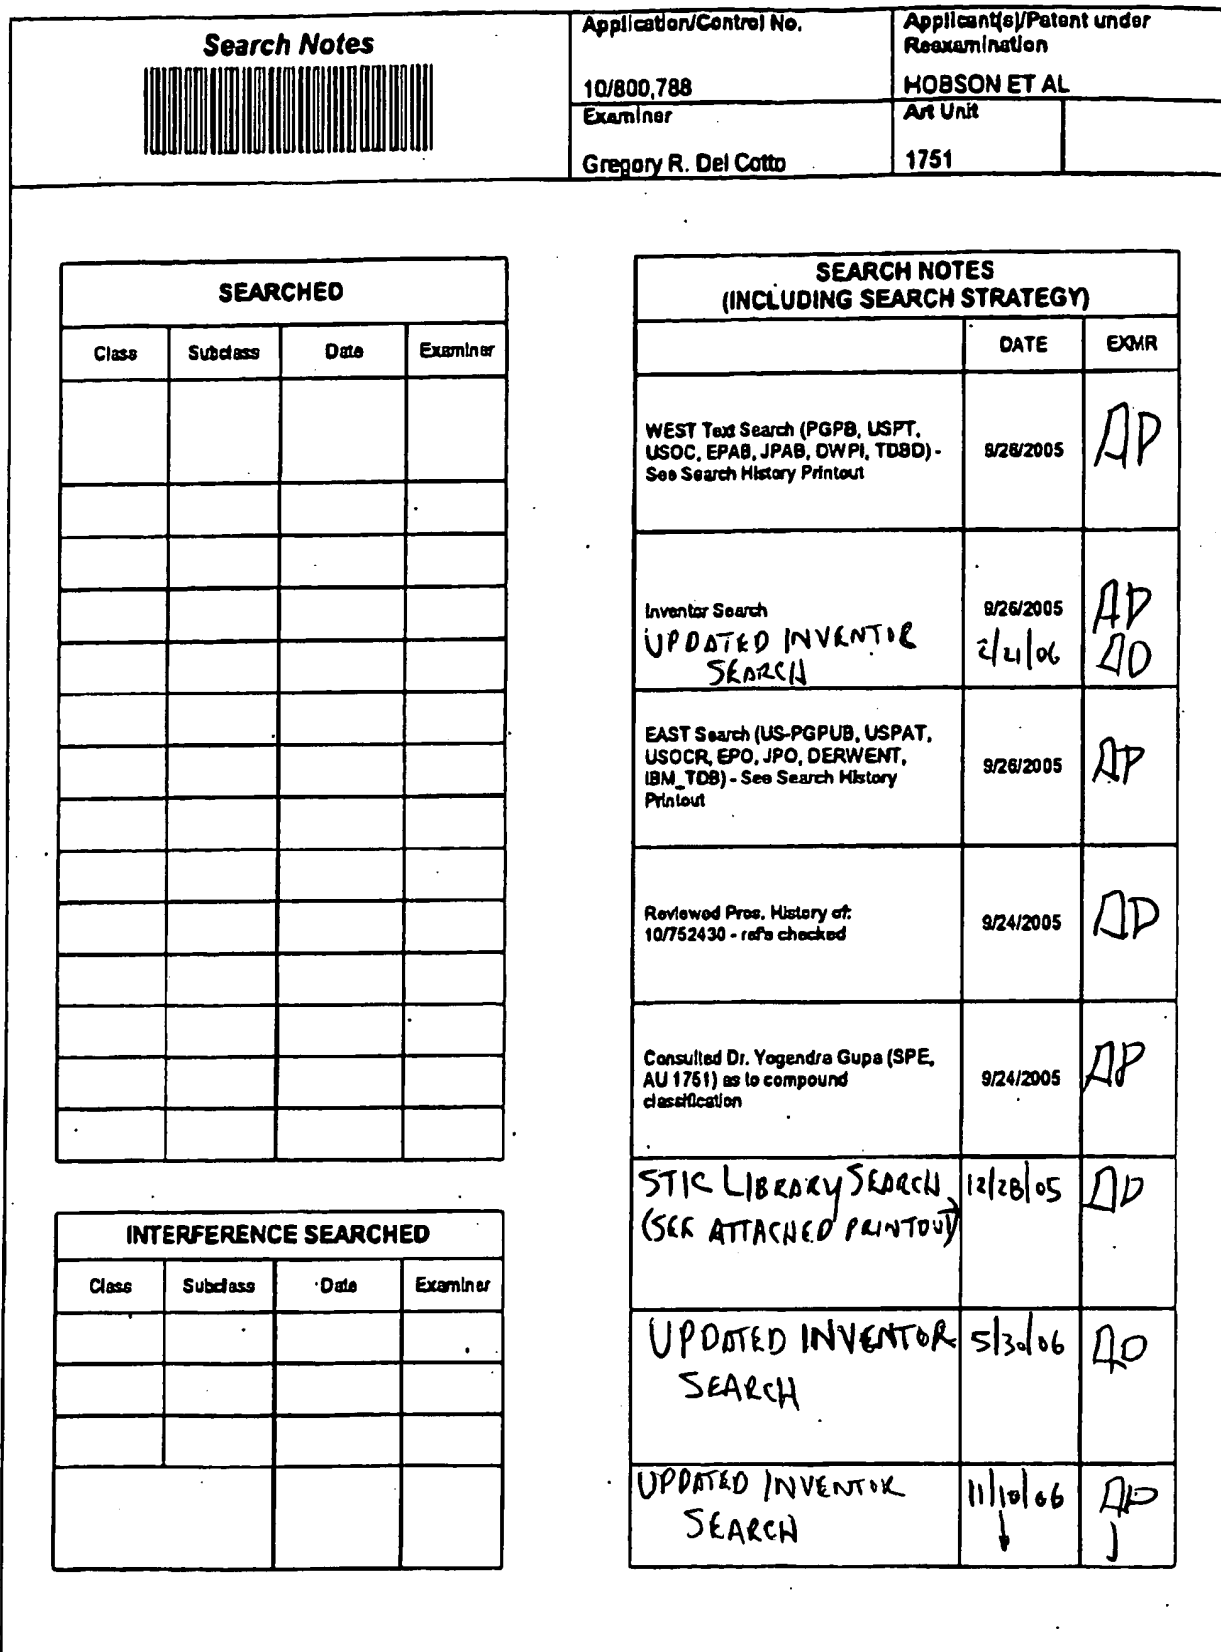 Search Notes
Application/Control No.
10/800,788
Applicant(s)/Patent under
Reexamination
HOBSON ET AL
Examiner
Gregory R. Del Cotto
Art Unit
1751
SEARCHED
Class Subclass Date Examiner
INTERFERENCE SEARCHED
Class Subclass Date Examiner
SEARCH NOTES
(INCLUDING SEARCH STRATEGY)
DATE EXMR
WEST Text Search (PGPB, USPT,
USOC, EPAB, JPAB, DWPI, TDBD) -
See Search History Printout
9/26/2005
Inventor Search
9/26/2005
UPDATED INVENTOR
SEARCH
2/21/06
EAST Search (US-PGPUB, USPAT,
USOCR, EPO, JPO, DERWENT,
IBM_TDB) - See Search History
Printout
9/26/2005
Reviewed Pros. History of:
10/752430 - ref's checked
9/24/2005
Consulted Dr. Yogendra Gupa (SPE,
AU 1751) as to compound
classification
9/24/2005
STIC LIBRARY SEARCH
(SEE ATTACHED PRINTOUT)
12/28/05
UPDATED INVENTOR
SEARCH
5/30/06
UPDATED INVENTOR
SEARCH
11/10/06